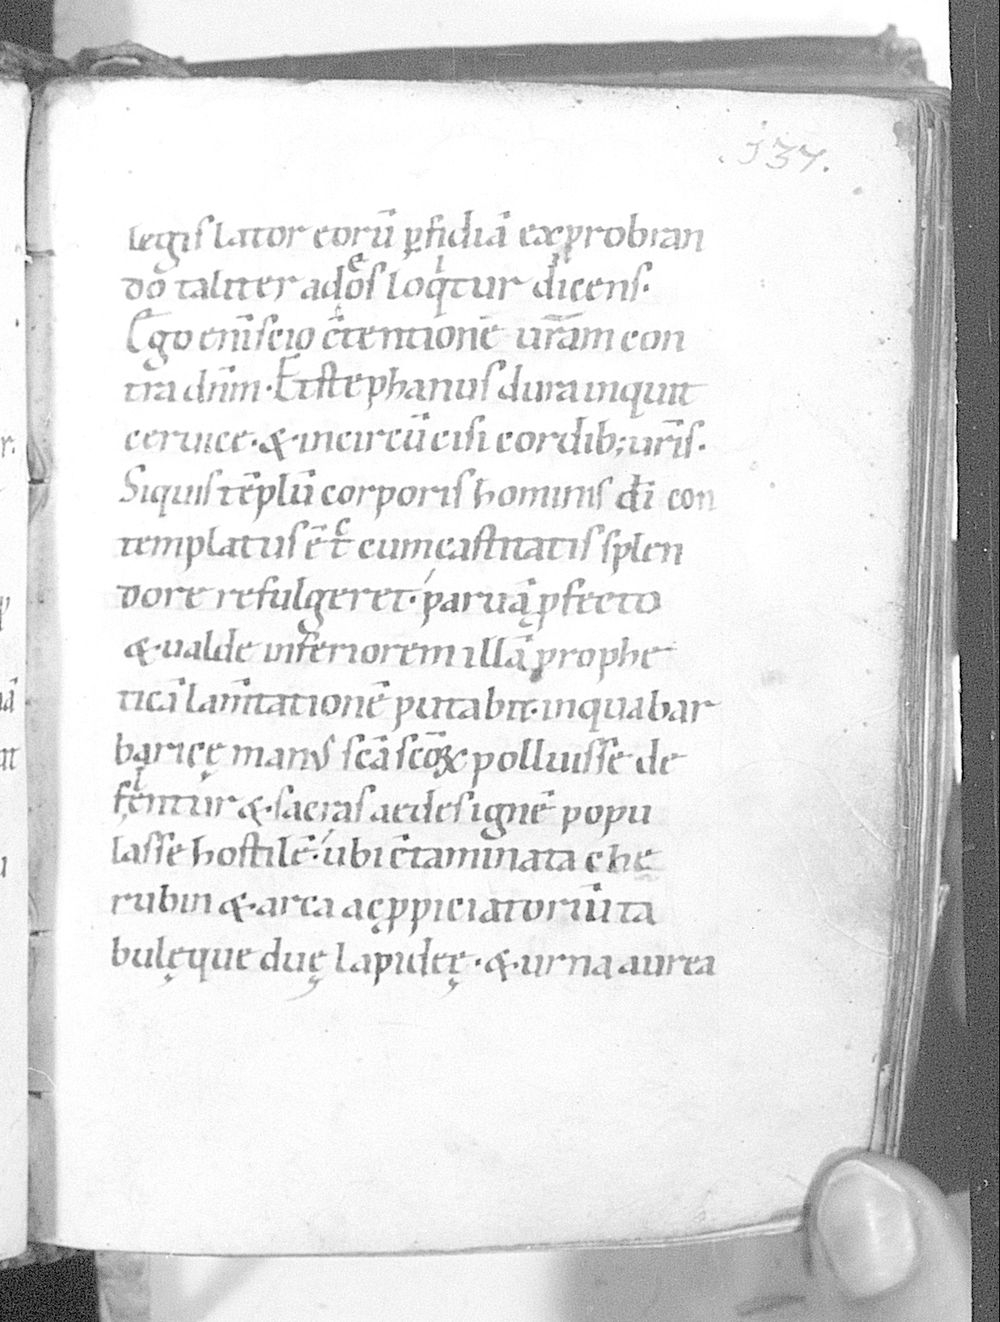 .137.
legislator eorū ꝑfidiā exprobran
do taliter ad eos loqͥtur dicens.
Ego enī scio c̄tentionē ur̄am con
tra dn̄m. Et stephanus dura inquit
ceruice. & incircūcisi cordib; ur̄is.
Siquis tēplū corporis hominis di̅ con
templatus ē t̄ cum castitatis splen
dore refulgeret. paruā ꝓfecto
& ualde inferiorem illā prophe
ticā lam̄tationē putabit. in qua bar
baricę manus scā sc̄oꝝ polluisse de
flentͥur & sacras aedes igne popu
lasse hostilē. ubi c̄taminata che
rubin & arca ac ꝓpiciatoriū ta
bulęque duę lapideę. & urna aurea